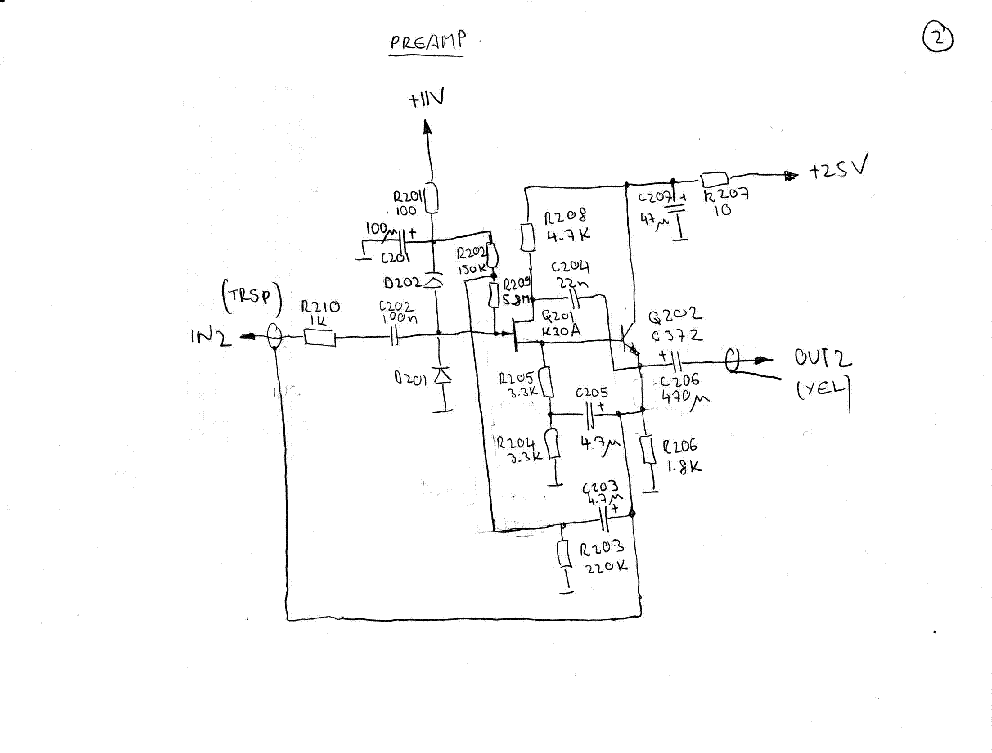 PREAMP
2
+11V
R201
100
100µ
C201
D202
R202
150K
R209
R208
4.7K
C204
22n
C207
47µ
R207
10
+25V
(TRSP)
R210
1K
C202
100n
IN2
Q201
K30A
Q202
C372
D201
R205
3.3K
C205
4.7µ
C206
470µ
OUT2
(YEL)
R204
3.3K
R206
1.8K
C203
4.7µ
R203
220K
+
+
+
+
+